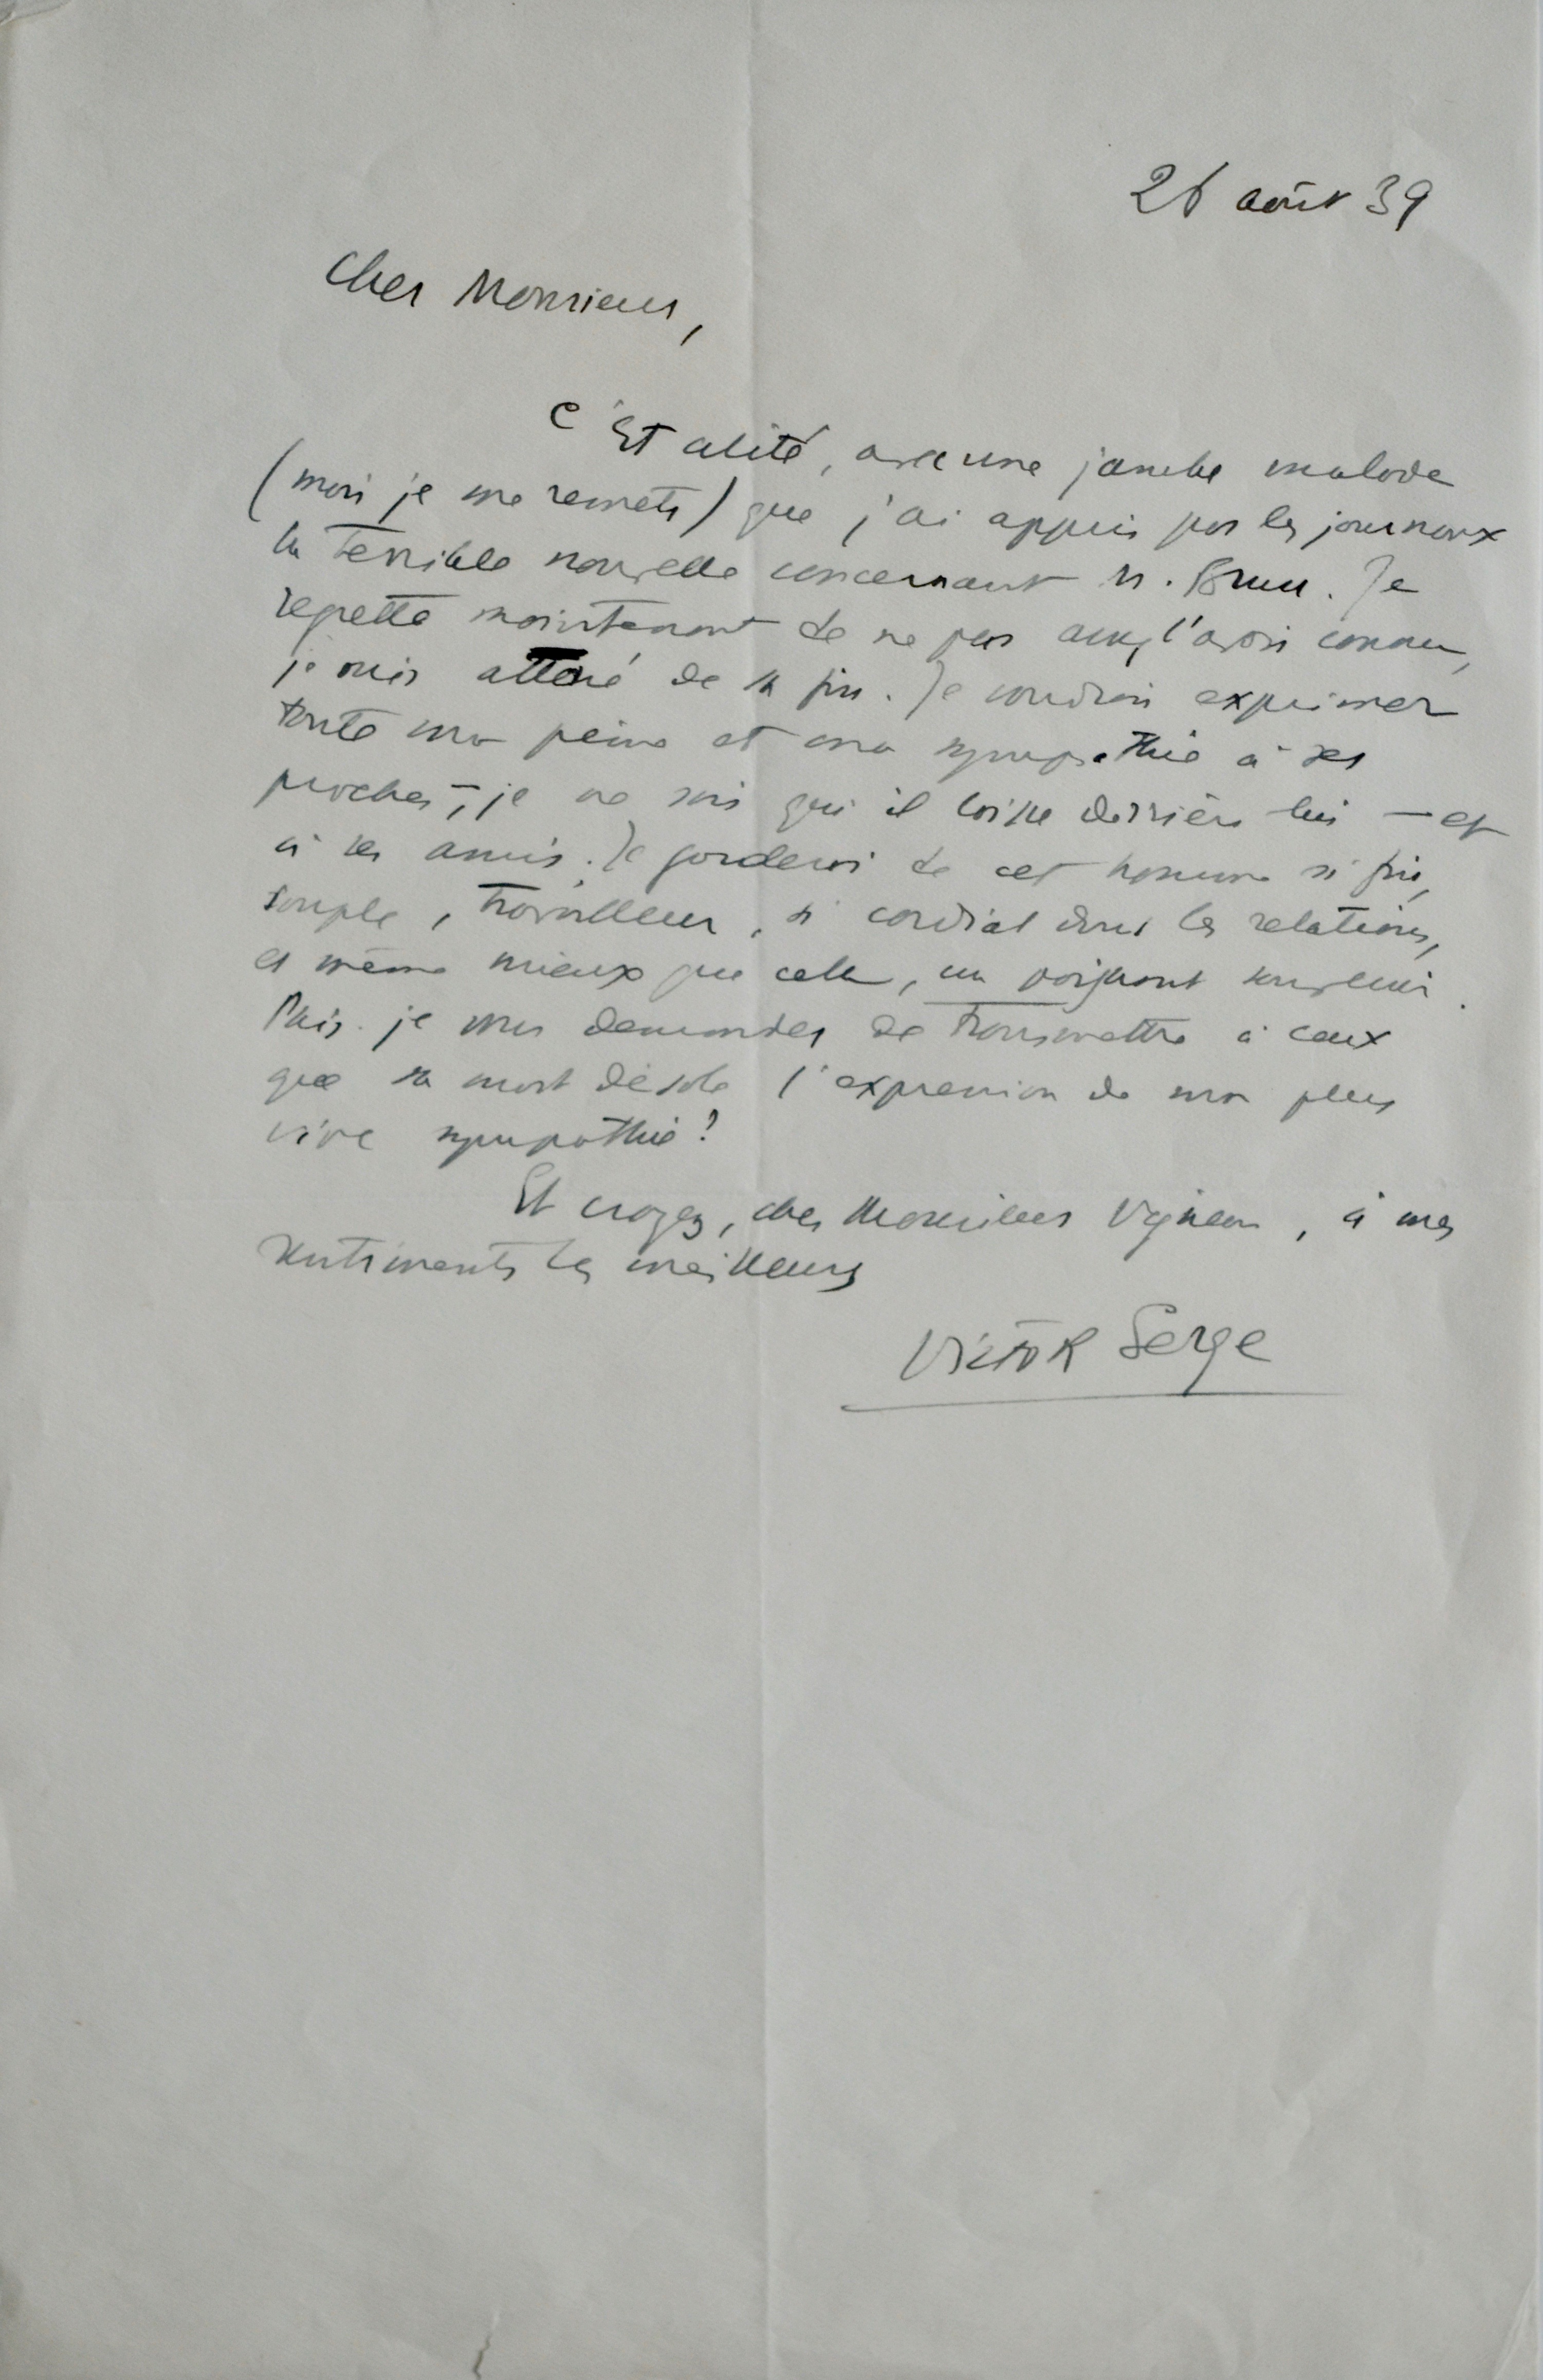 26 août 39
Cher Monsieur,
C'Est alité, avec une jambe malade
(mais je me remets) que j'ai appris par les journaux
la terrible nouvelle concernant M. Brun. Je
regrette maintenant de ne pas assez l'avoir connu,
je suis atterré de sa fin. Je voudrais exprimer
toute ma peine et ma sympathie à ses
proches, – je ne sais qui il laisse derrière lui – et
à ses amis. Je garderai de cet homme si fin,
souple, travailleur, si cordial dans les relations,
et même mieux que cela, un poignant souvenir.
Puis-je vous demander de transmettre à ceux
que sa mort désole l'expression de ma plus
vive sympathie?
Et croyez, cher Monsieur, à mes
sentiments les meilleurs
Victor Serge